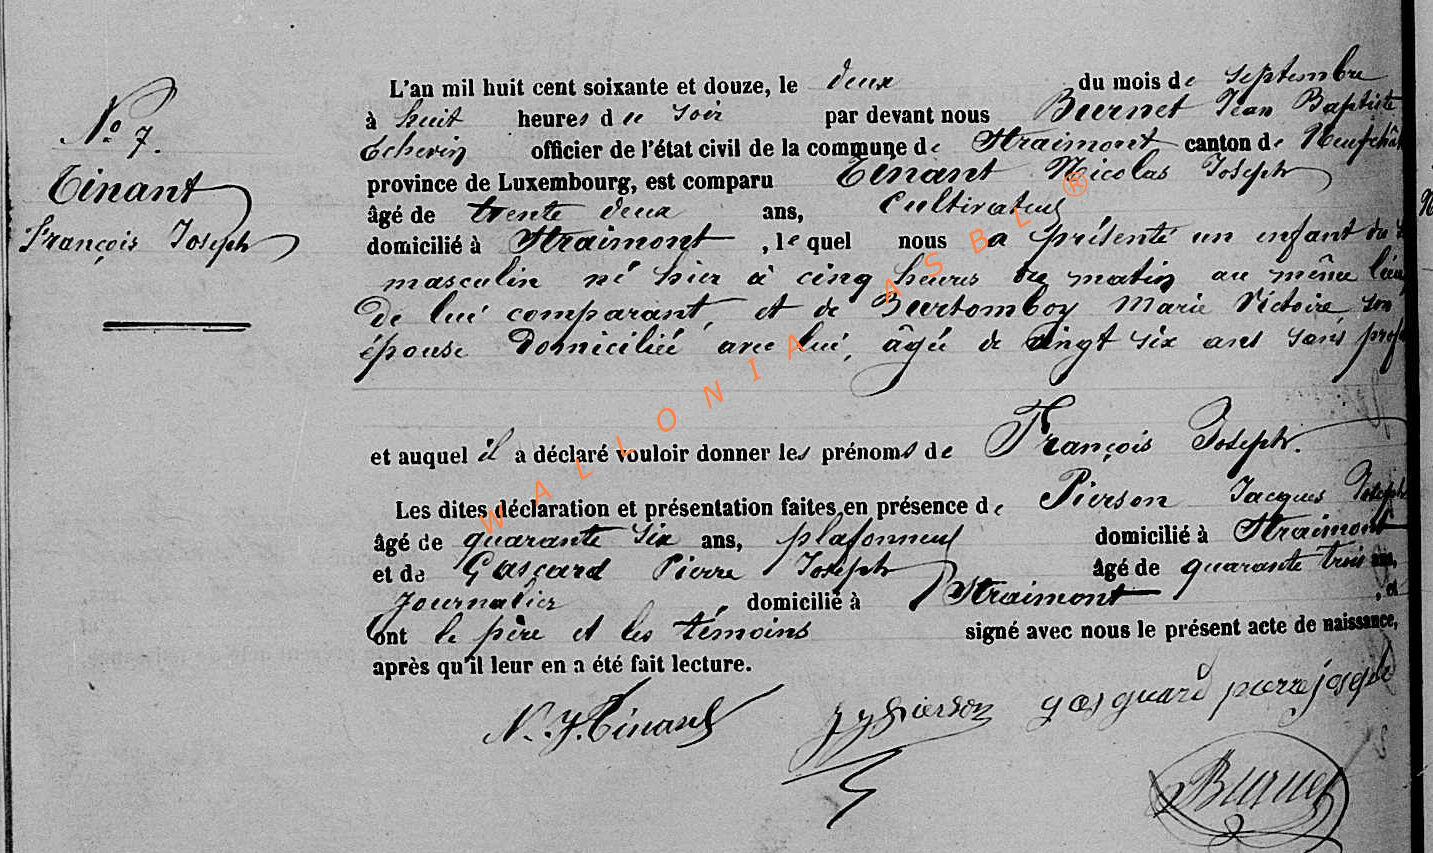 N° 7.
Tinant
François Joseph
L'an mil huit cent soixante et douze, le deux du mois de septembre
à huit heures du soir par devant nous Burnet Jean Baptiste
Echevin officier de l'état civil de la commune de Straimont canton de Neufchât
province de Luxembourg, est comparu Tinant Nicolas Joseph
âgé de trente deux ans, Cultivateur
domicilié à Straimont, lequel nous a présenté un enfant du
masculin né hier à cinq heures du matin au même lieu
De lui comparant, et de Burtomboy Marie Victoire son
épouse Domiciliée avec lui, âgée de vingt six ans sans prof
et auquel il a déclaré vouloir donner les prénoms de François Joseph.
Les dites déclaration et présentation faites en présence de Pierson Jacques Joseph
âgé de quarante six ans, plafonneur domicilié à Straimont
et de Gascard Pierre Joseph âgé de quarante trois ans,
Journalier, domicilié à Straimont, et
ont le père et les témoins signé avec nous le présent acte de naissance,
après qu'il leur en a été fait lecture.
N. J. Tinant JJ Pierson gasguard pierre joseph
Burnet
WALLONIA ASBL ®